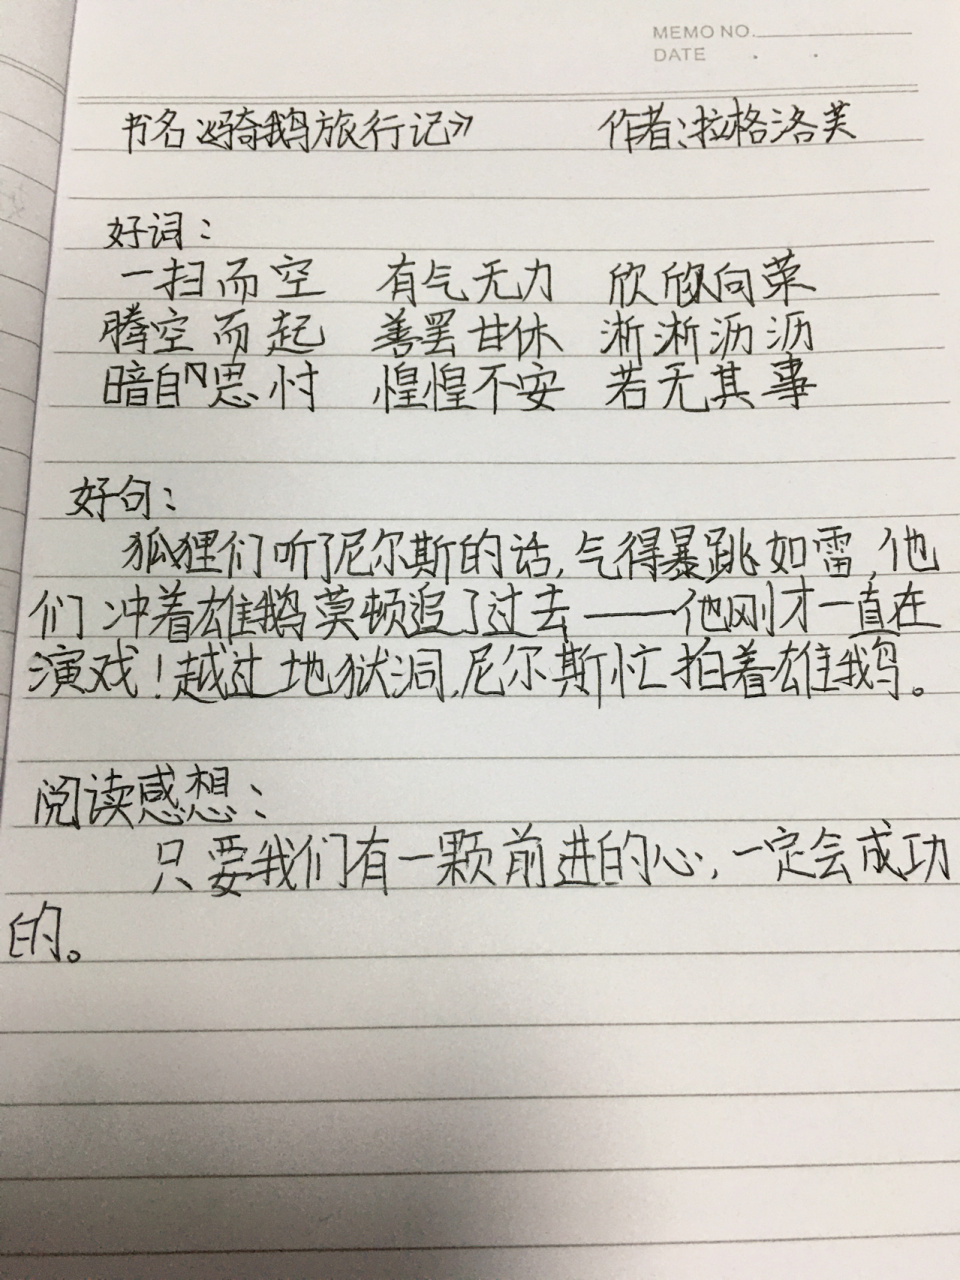 MEMO NO.
DATE . .
书名《骑鹅旅行记》 作者:拉格洛芙
好词:
一扫而空 有气无力 欣欣向荣
腾空而起 善罢甘休 淅淅沥沥
暗自思忖 惶惶不安 若无其事
好句:
狐狸们听了尼尔斯的话,气得暴跳如雷,他
们冲着雄鹅莫顿追了过去——他刚才一直在
演戏!越过地狱洞,尼尔斯忙拍着雄鹅。
阅读感想:
只要我们有一颗前进的心,一定会成功
的。